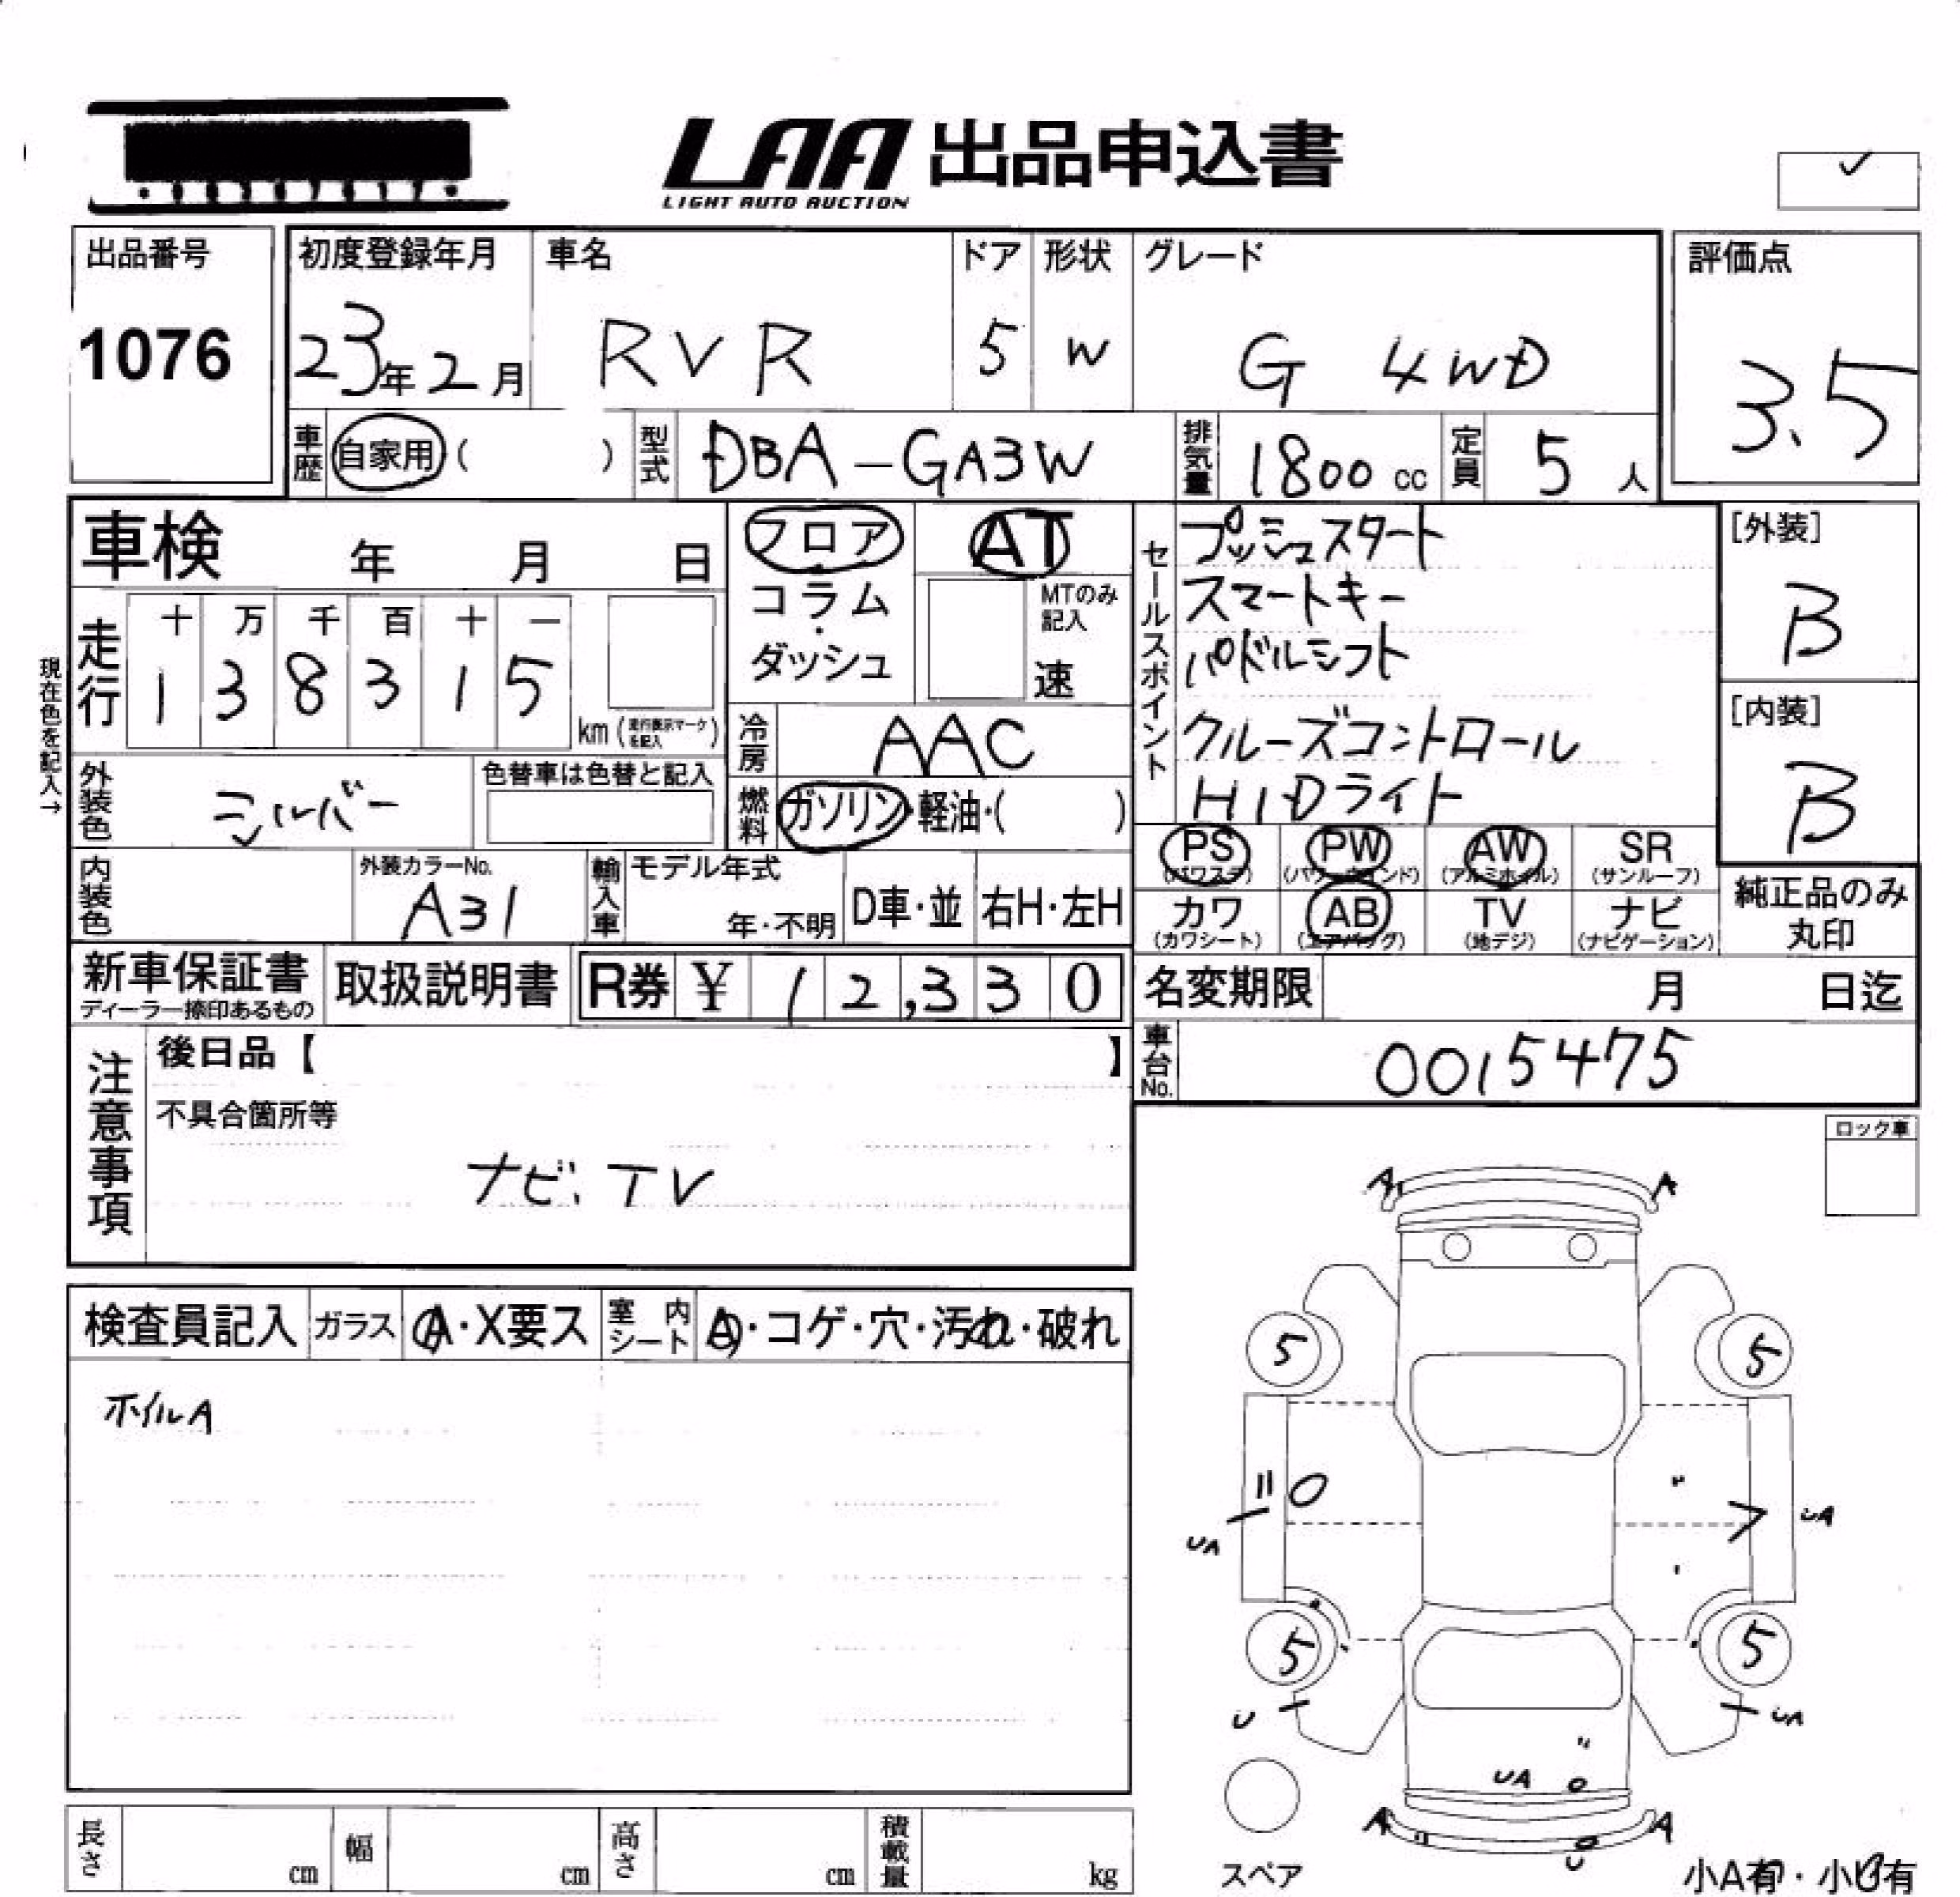 LAA 出品申込書
LIGHT AUTO AUCTION
出品番号
1076
初度登録年月
23年2月
車名
RVR
ドア
5
形状
W
グレード
G 4WD
評価点
3.5
車歴 自家用 ( )
型式 DBA-GA3W
排気量 1800 cc
定員 5 人
車検 年 月 日
走行
十 万 千 百 十 一
1 3 8 3 1 5
km (走行表示マークを記入)
現在色を記入→
外装色 シルバー
色替車は色替と記入
内装色
外装カラーNo.
A31
フロア
コラム
・
ダッシュ
AT
MTのみ
記入
速
冷房 AAC
燃料 ガソリン・軽油・( )
輸入車 モデル年式
年・不明
D車・並
右H・左H
セールスポイント
プッシュスタート
スマートキー
パドルシフト
クルーズコントロール
HIDライト
[外装]
B
[内装]
B
PS
(パワステ)
PW
(パワーウインド)
AW
(アルミホイル)
SR
(サンルーフ)
カワ
(カワシート)
AB
(エアバッグ)
TV
(地デジ)
ナビ
(ナビゲーション)
純正品のみ
丸印
新車保証書
ディーラー捺印あるもの
取扱説明書
R券 ¥ 12,330
名変期限 月 日迄
車台No. 0015475
注意事項
後日品【 】
不具合箇所等
ナビ、TV
ロック車
検査員記入
ガラス
A・X要ス
室内シート
A・コゲ・穴・汚れ・破れ
ホイルA
A A
5 5
UA UA
5 5
U UA
UA
A A
U
スペア
小A有・小U有
長さ cm
幅 cm
高さ cm
積載量 kg